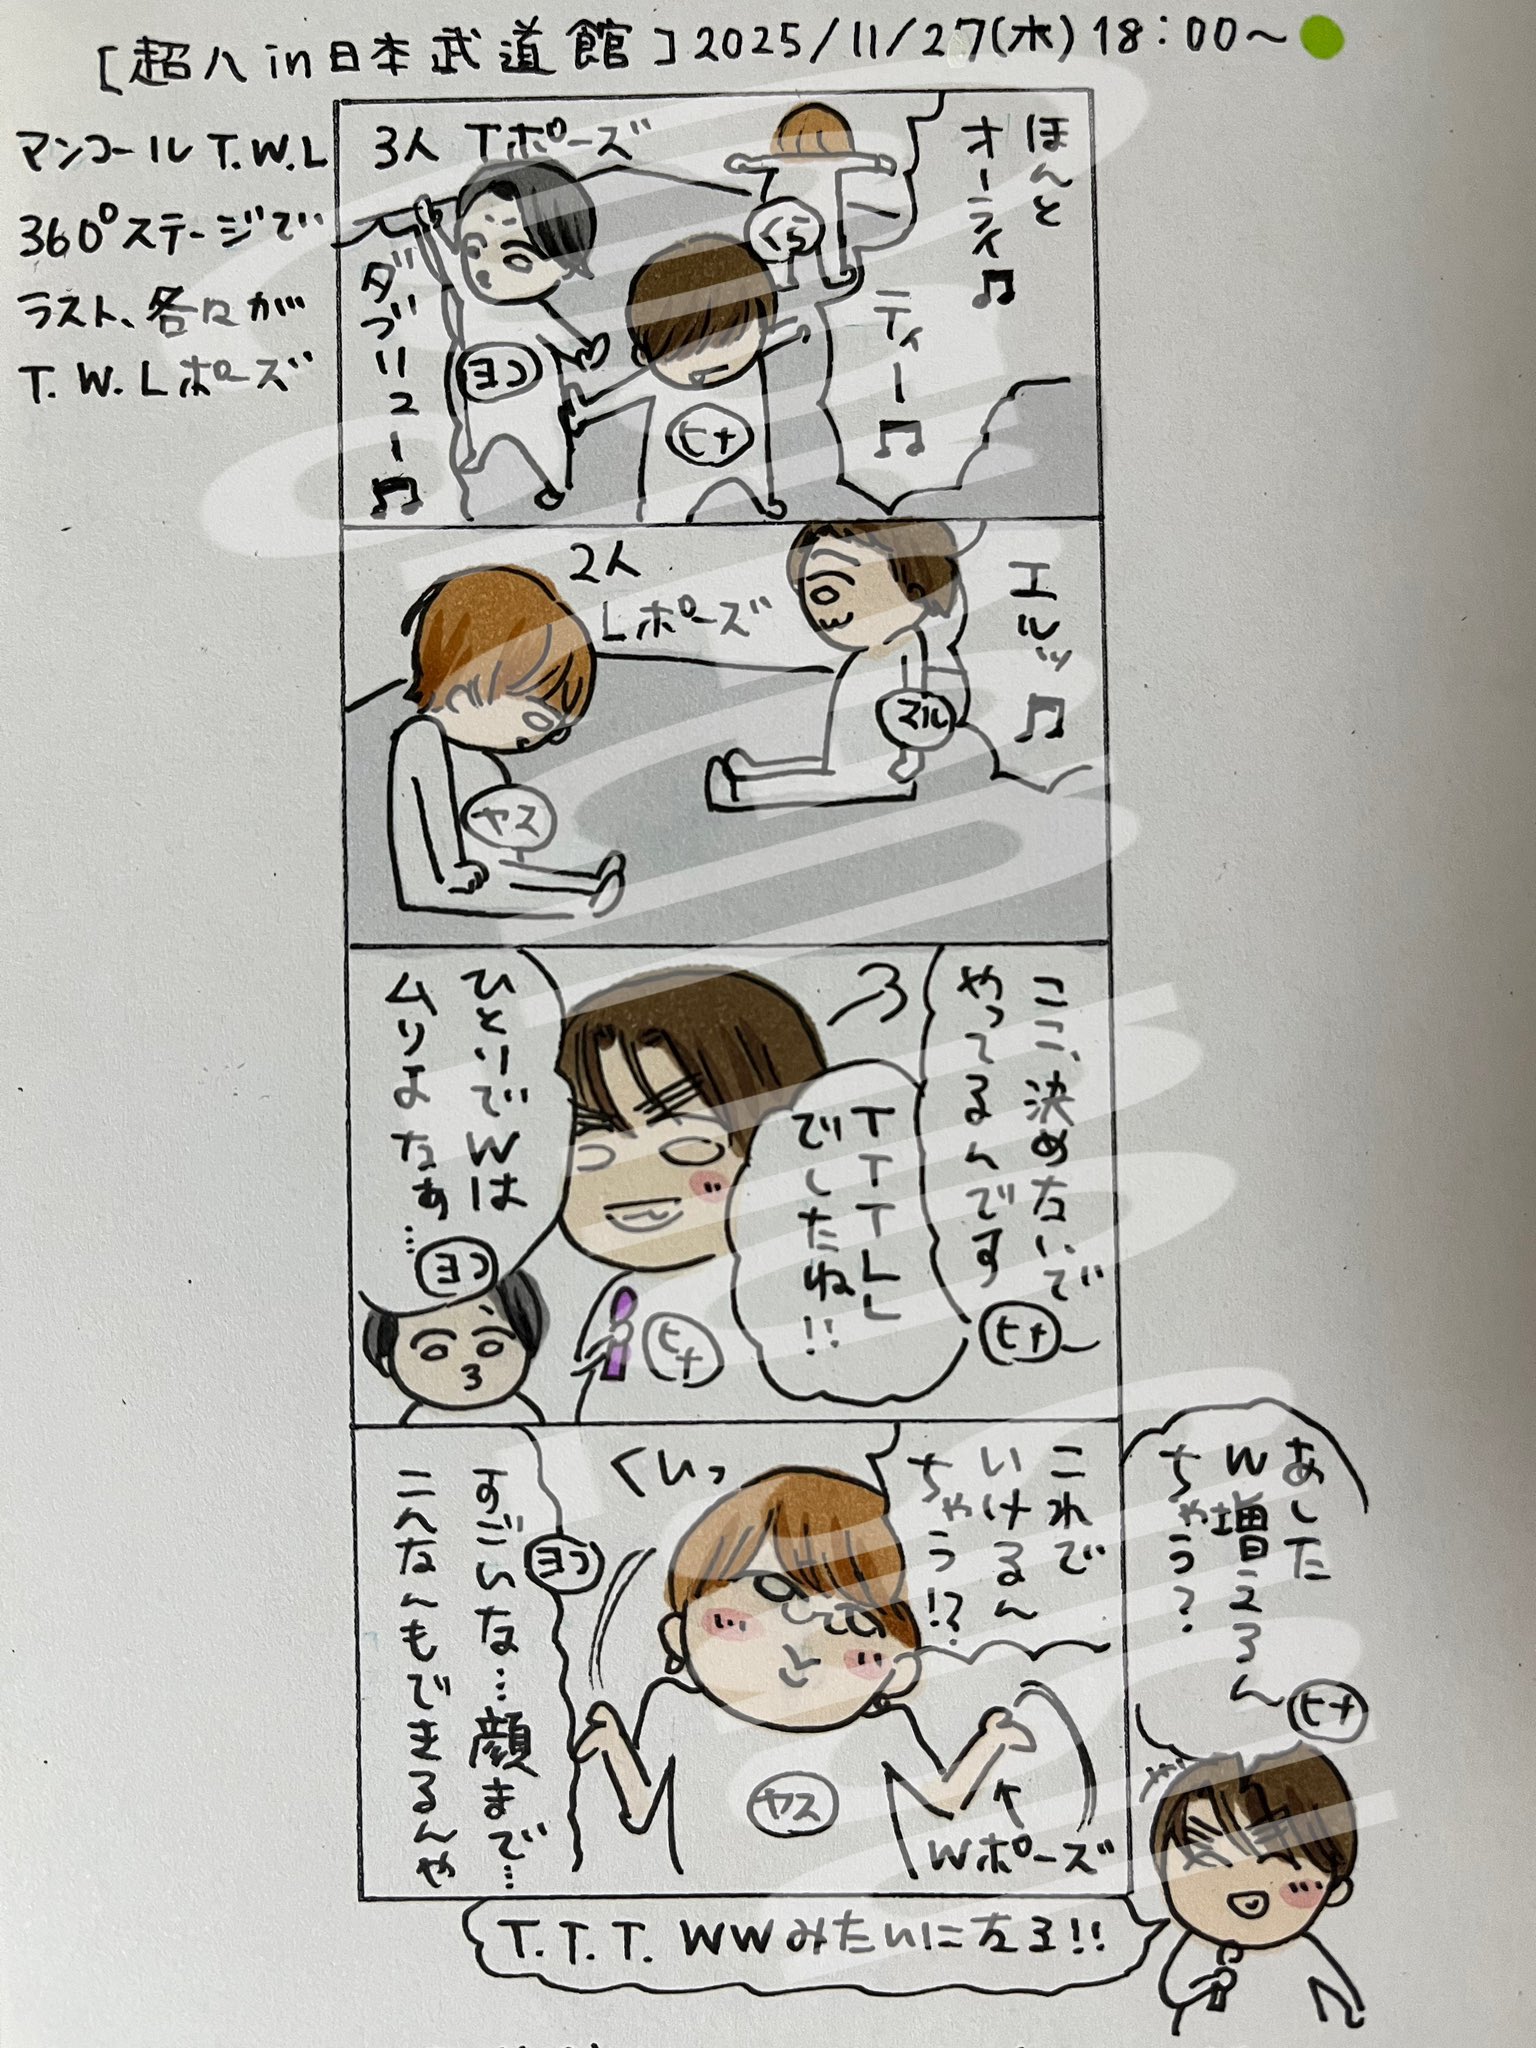 [超八in日本武道館]2025/11/27(木)18:00～
マンコールT.W.L
360°ステージで
ラスト、各々が
T.W.Lポーズ
3人 Tポーズ
ほんと
オーライ♫
ティー♫
くら
ヨコ
ヒナ
ダブリュー♫
2人
Lポーズ
エルッ♫
マル
ヤス
ここ、決めないで
やってるんです
ヒナ
TTTTLL
でしたね!!
ヒナ
ひとりでWは
ムリよなぁ…
ヨコ
これで
いけるん
ちゃう!?
くいっ
ヤス
Wポーズ
ヨコ
すごいな…顔まで…
こんなんもできるんや
あした
W増えるん
ちゃう?
ヒナ
T.T.T.WWみたいになる!!